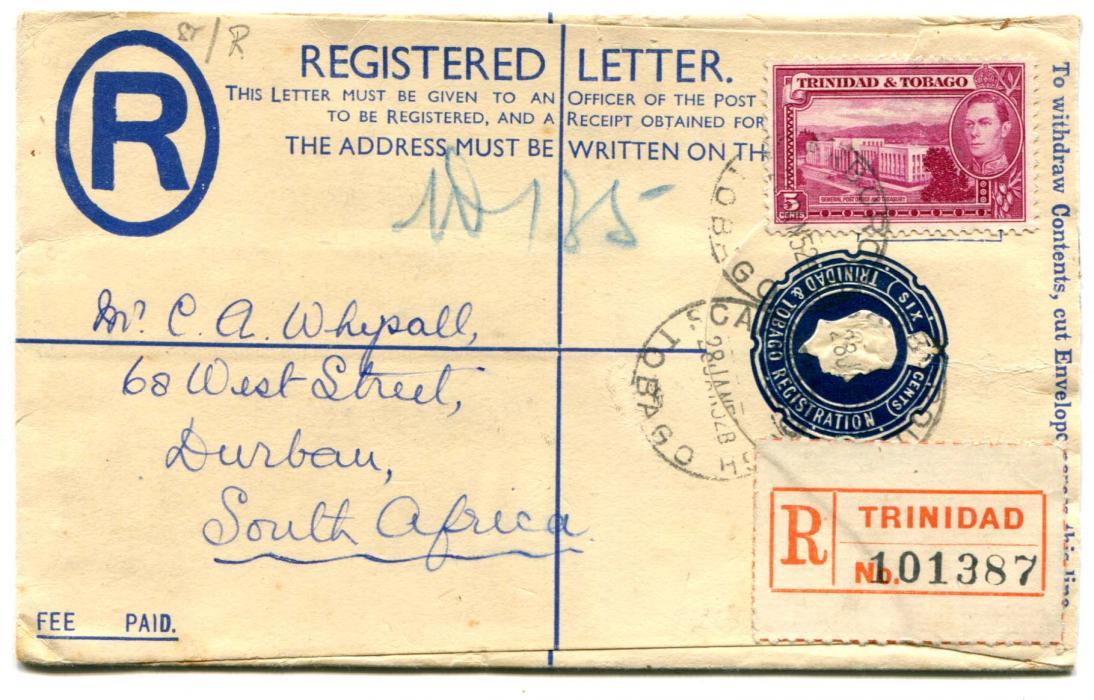 R
REGISTERED LETTER.
THIS LETTER MUST BE GIVEN TO AN OFFICER OF THE POST
TO BE REGISTERED, AND A RECEIPT OBTAINED FOR
THE ADDRESS MUST BE WRITTEN ON TH
TRINIDAD & TOBAGO
5
CENTS
TOBAGO
SCA
TOBAGO
28 JAN 52 B
TRINIDAD & TOBAGO REGISTRATION (SIX CENTS)
185
Mr. C. A. Whysall,
68 West Street,
Durban,
South Africa
FEE PAID.
R TRINIDAD
No. 101387
To withdraw Contents, cut Envelope across this line